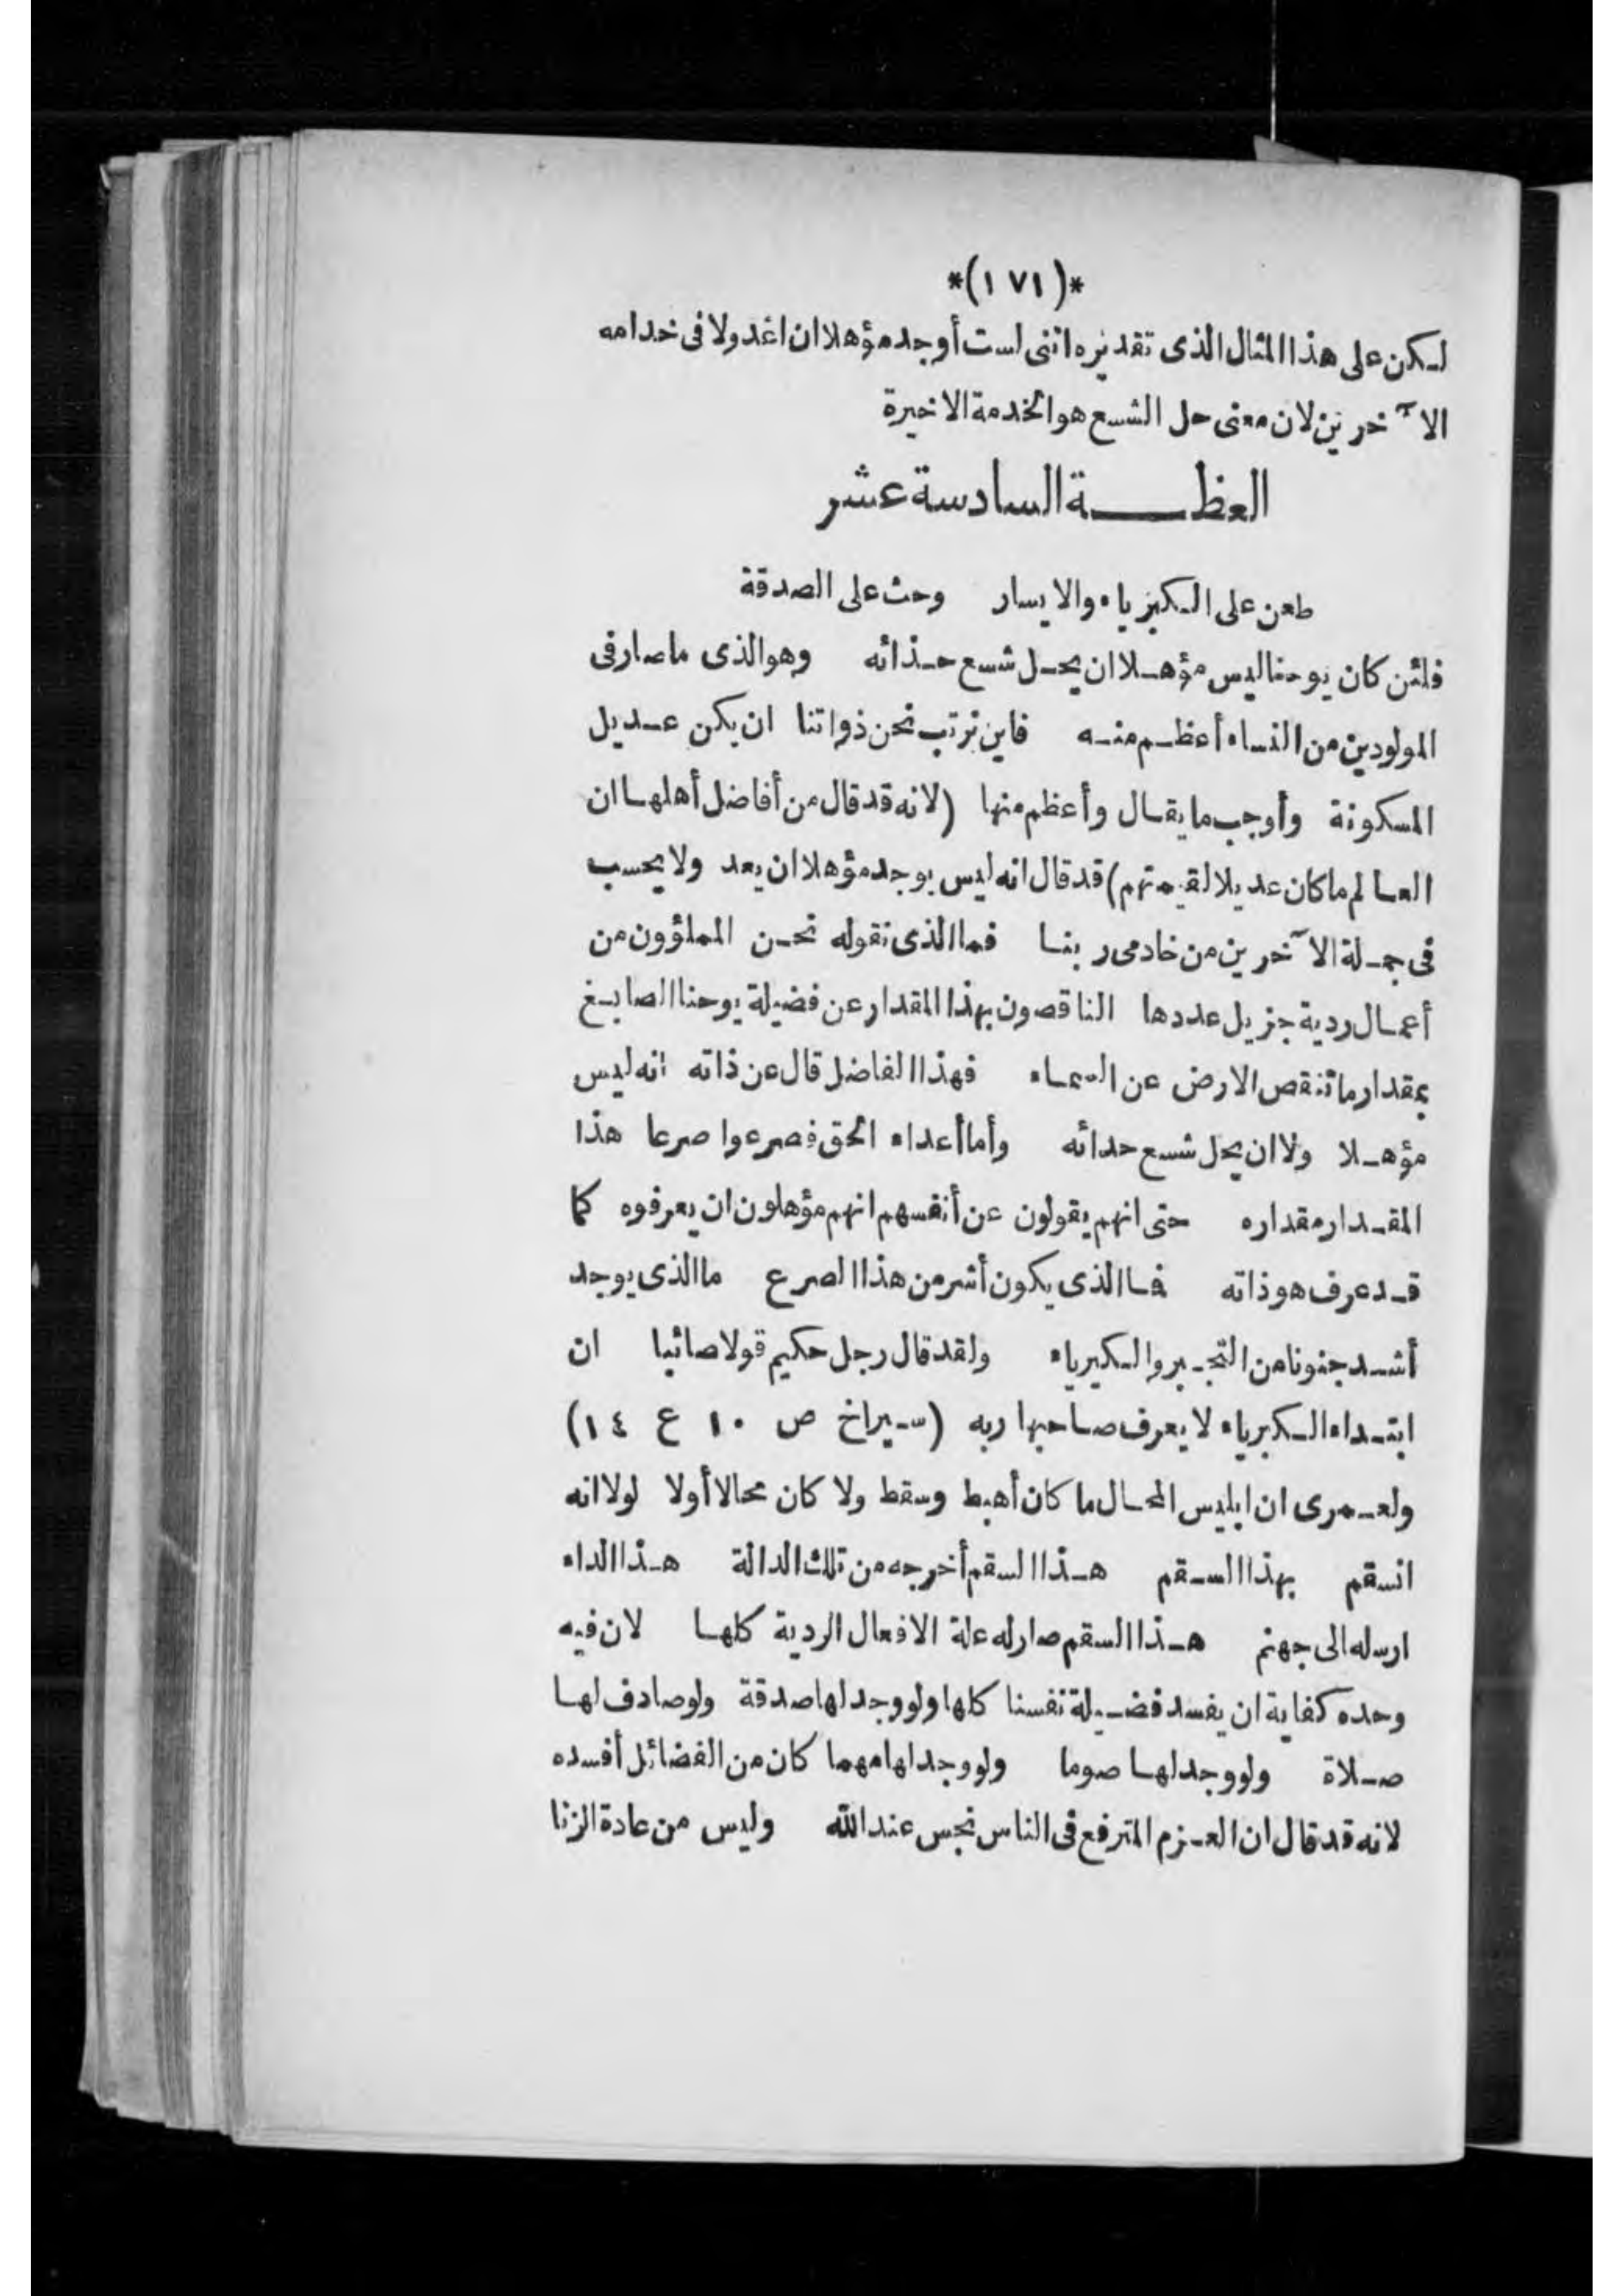 *(١٧١)*
لكن على هذا المثال الذى تقديره اننى لست أوجد مؤهلا ان اعد ولا فى خدامه
الآخرين لان معنى حل الشسع هو الخدمة الاخيرة
العظة السادسة عشر
طعن على الكبرياء والايسار وحث على الصدقة
فلئن كان يوحنا ليس مؤهلا ان يحل شسع حذائه وهو الذى ما صار فى
المولودين من النساء أعظم منه فاين نرتب نحن ذواتنا ان يكن عديل
المسكونة وأوجب ما يقال وأعظم منها (لانه قد قال من أفاضل أهلها ان
العالم ما كان عديلا لقيمتهم) قد قال انه ليس يوجد مؤهلا ان يعد ولا يحسب
فى جملة الآخرين من خادمى ربنا فما الذى نقوله نحن المملؤون من
أعمال ردية جزيل عددها الناقصون بهذا المقدار عن فضيلة يوحنا الصابغ
بمقدار ما تنقص الارض عن السماء فهذا الفاضل قال عن ذاته انه ليس
مؤهلا ولا ان يحل شسع حدائه وأما أعداء الحق فصرعوا صرعا هذا
المقدار مقداره حتى انهم يقولون عن أنفسهم انهم مؤهلون ان يعرفوه كما
قد عرف هو ذاته فما الذى يكون أشر من هذا الصرع ما الذى يوجد
أشد جنونا من التجبر والكبرياء ولقد قال رجل حكيم قولا صائبا ان
ابتداء الكبرياء لا يعرف صاحبها ربه (سيراخ ص ١٠ ع ١٤)
ولعمرى ان ابليس المحال ما كان أهبط وسقط ولا كان محالا أولا لولا انه
انسقم بهذا السقم هذا السقم أخرجه من تلك الدالة هذا الداء
ارسله الى جهنم هذا السقم صار له علة الافعال الردية كلها لان فيه
وحده كفاية ان يفسد فضيلة نفسنا كلها ولو وجد لها صدقة ولو صادف لها
صلاة ولو وجد لها صوما ولو وجد لها مهما كان من الفضائل أفسده
لانه قد قال ان العزم المترفع فى الناس نجس عند الله وليس من عادة الزنا